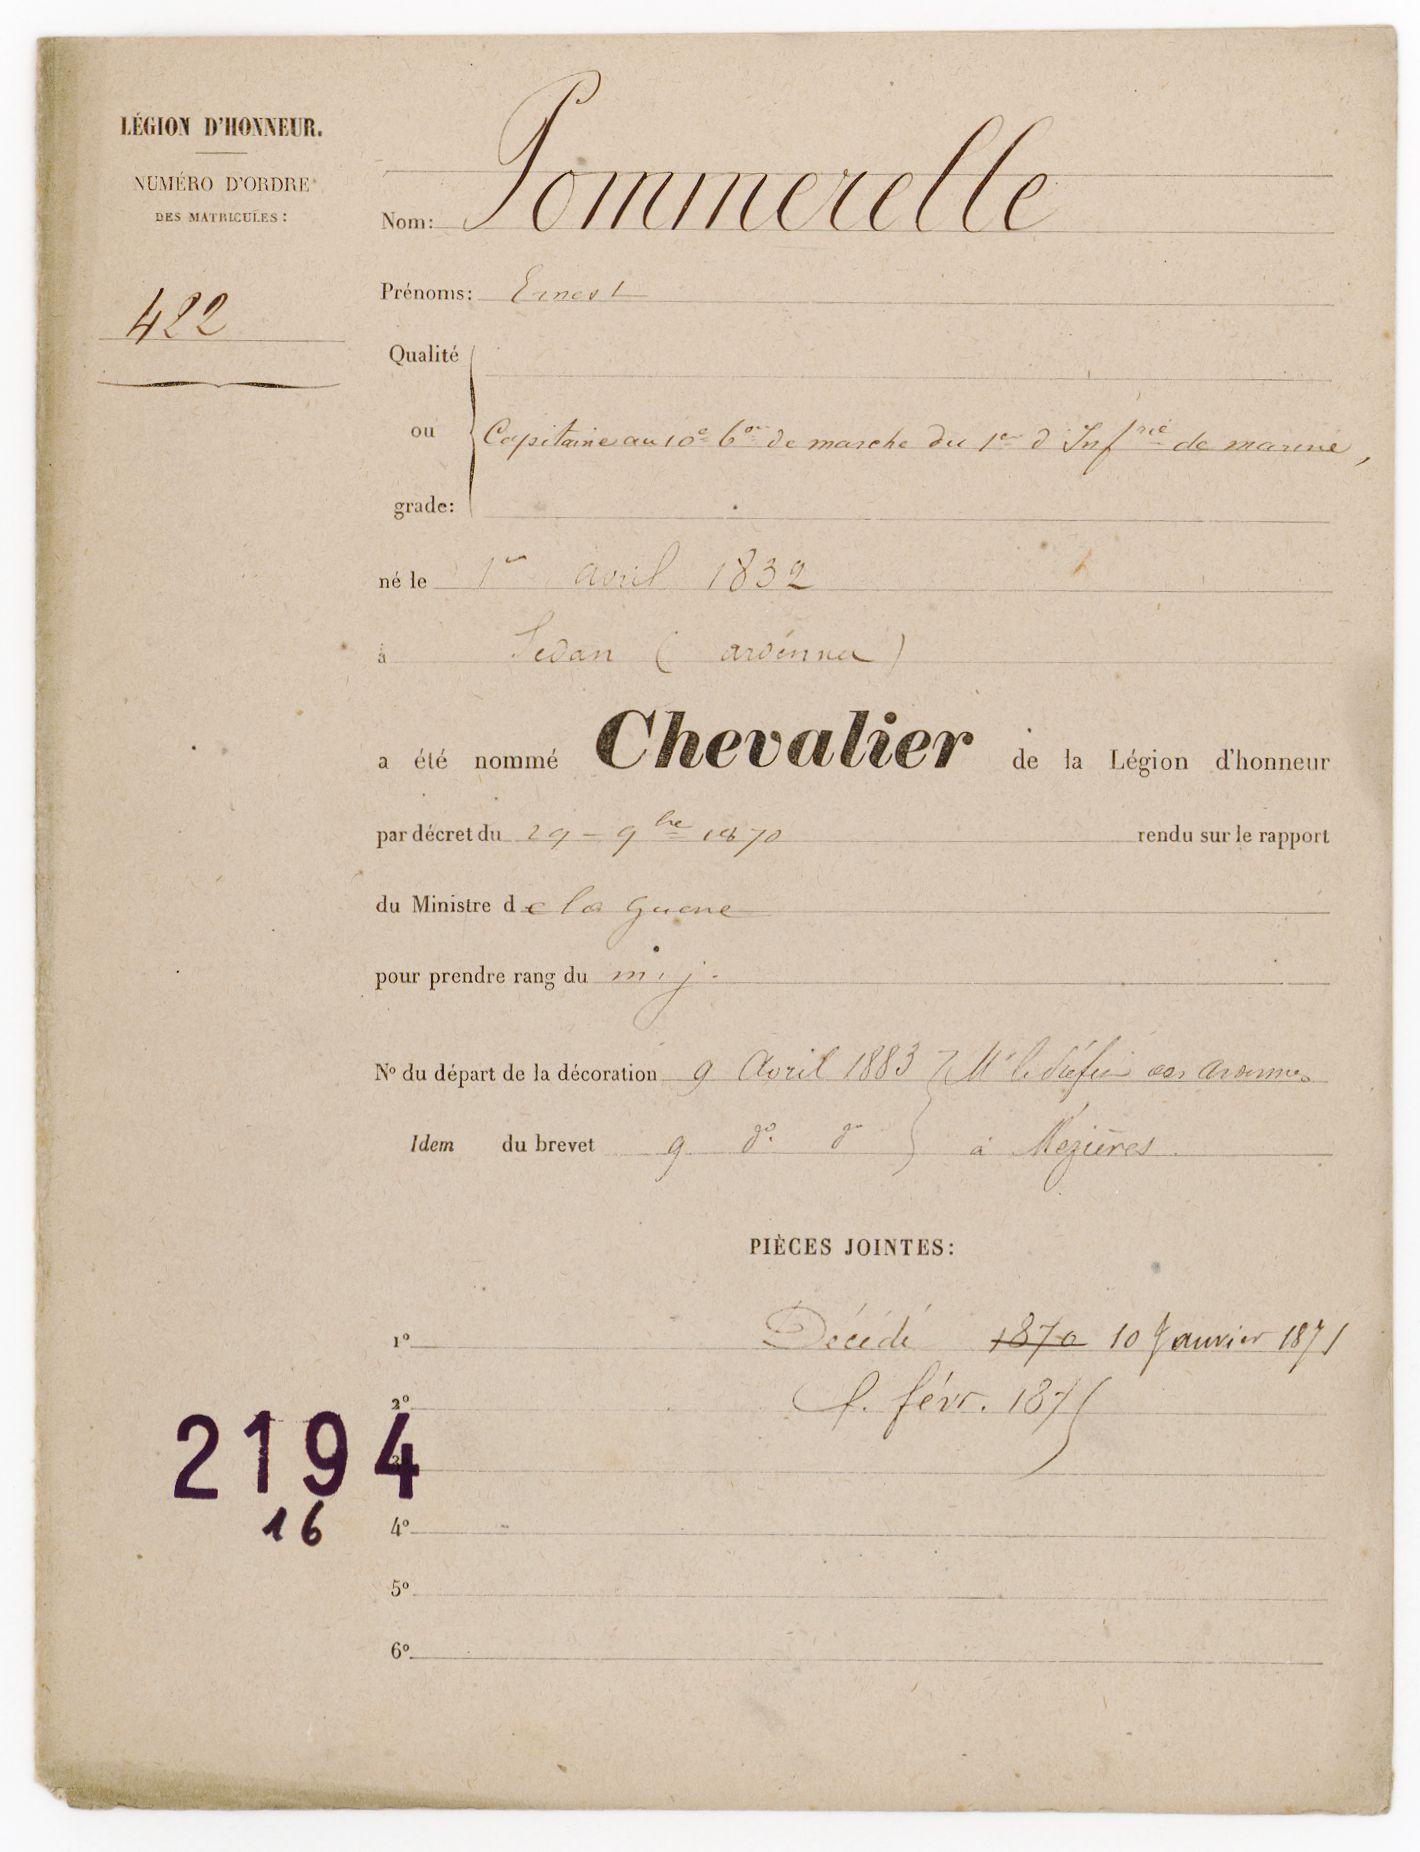 LÉGION D'HONNEUR.
NUMÉRO D'ORDRE
DES MATRICULES :
422
Nom: Pommerelle
Prénoms: Ernest
Qualité
ou
grade:
Capitaine au 10e Bon de marche du 1er d'Infrie de marine,
né le 1er avril 1832
à Sedan (ardennes)
a été nommé Chevalier de la Légion d'honneur
par décret du 29 - 9bre 1870 rendu sur le rapport
du Ministre de la guerre
pour prendre rang du m. j.
No du départ de la décoration 9 Avril 1883 } Mr le Préfet des Ardennes
Idem du brevet 9 do do } à Mézières
PIÈCES JOINTES:
1o Décédé 1870 10 Janvier 1871
2o févr. 187
3o
2194
16
4o
5o
6o